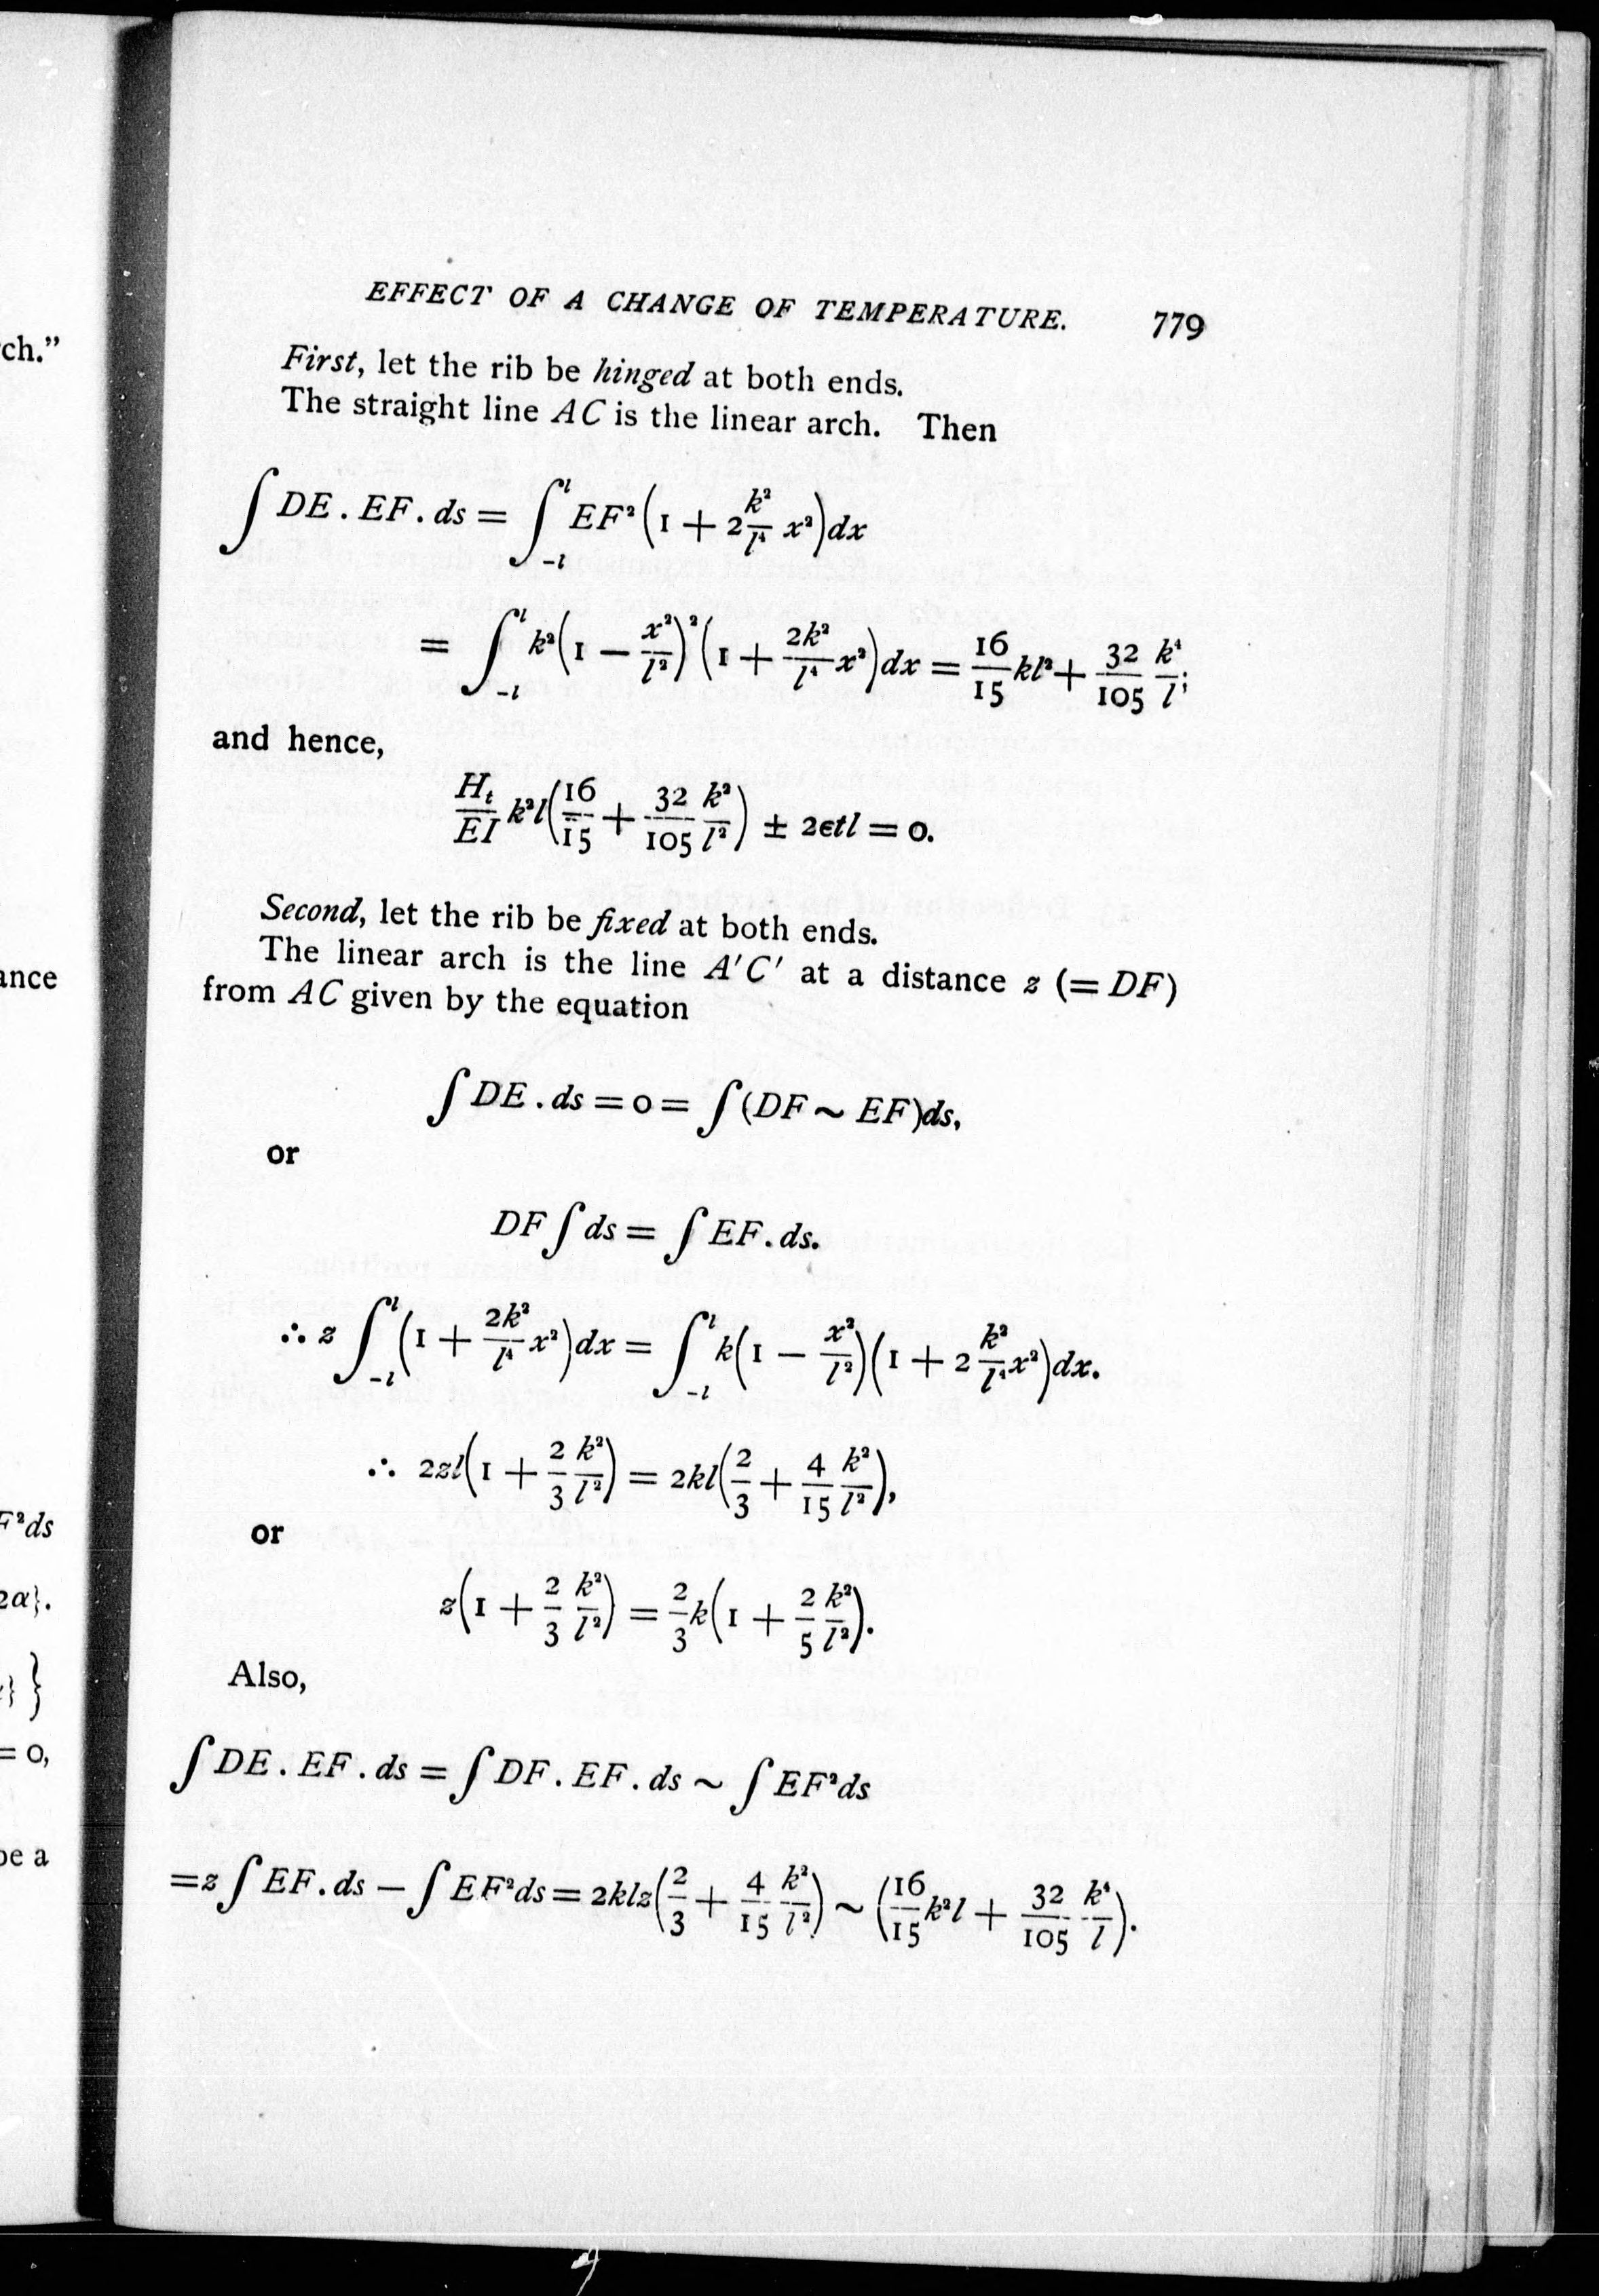 EFFECT OF A CHANGE OF TEMPERATURE. 779
First, let the rib be hinged at both ends.
The straight line AC is the linear arch. Then
∫ DE . EF . ds = ∫_{-l}^{l} EF² (1 + 2 k²/l⁴ x²) dx
= ∫_{-l}^{l} k² (1 − x²/l²)² (1 + 2k²/l⁴ x²) dx = 16/15 kl² + 32/105 k⁴/l;
and hence,
H_t/EI k²l (16/15 + 32/105 k²/l²) ± 2ϵtl = 0.
Second, let the rib be fixed at both ends.
The linear arch is the line A′C′ at a distance z (= DF)
from AC given by the equation
∫ DE . ds = 0 = ∫ (DF ~ EF)ds,
or
DF ∫ ds = ∫ EF . ds.
∴ z ∫_{-l}^{l} (1 + 2k²/l⁴ x²) dx = ∫_{-l}^{l} k (1 − x²/l²) (1 + 2 k²/l⁴ x²) dx.
∴ 2zl (1 + 2/3 k²/l²) = 2kl (2/3 + 4/15 k²/l²),
or
z (1 + 2/3 k²/l²) = 2/3 k (1 + 2/5 k²/l²).
Also,
∫ DE . EF . ds = ∫ DF . EF . ds ~ ∫ EF² ds
= z ∫ EF . ds − ∫ EF² ds = 2klz (2/3 + 4/15 k²/l²) ~ (16/15 k²l + 32/105 k⁴/l).
ch.”
ance
F²ds
2α}.
}
= 0,
be a